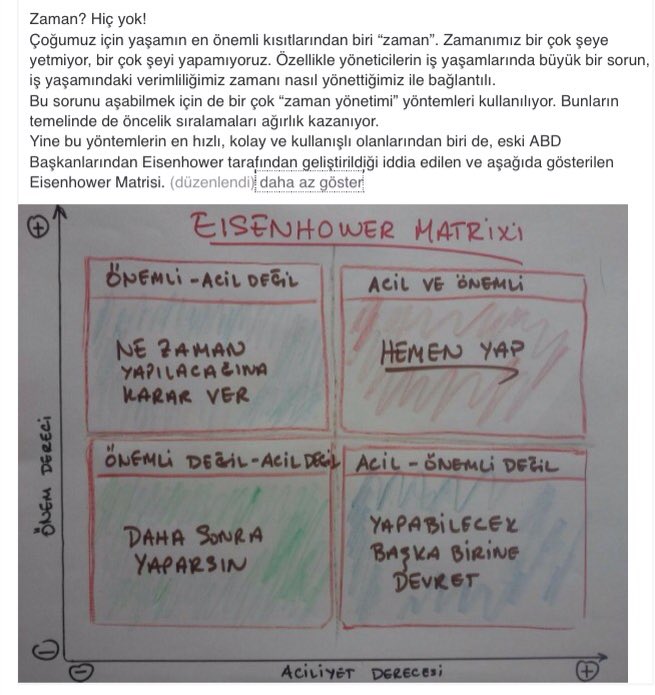 Zaman? Hiç yok!
Çoğumuz için yaşamın en önemli kısıtlarından biri “zaman”. Zamanımız bir çok şeye
yetmiyor, bir çok şeyi yapamıyoruz. Özellikle yöneticilerin iş yaşamlarında büyük bir sorun,
iş yaşamındaki verimliliğimiz zamanı nasıl yönettiğimiz ile bağlantılı.
Bu sorunu aşabilmek için de bir çok “zaman yönetimi” yöntemleri kullanılıyor. Bunların
temelinde de öncelik sıralamaları ağırlık kazanıyor.
Yine bu yöntemlerin en hızlı, kolay ve kullanışlı olanlarından biri de, eski ABD
Başkanlarından Eisenhower tarafından geliştirildiği iddia edilen ve aşağıda gösterilen
Eisenhower Matrisi. (düzenlendi) daha az göster
EISENHOWER MATRIXİ
ÖNEMLİ - ACİL DEĞİL
NE ZAMAN
YAPILACAĞINA
KARAR VER
ACİL VE ÖNEMLİ
HEMEN YAP
ÖNEMLİ DEĞİL - ACİL DEĞİL
DAHA SONRA
YAPARSIN
ACİL - ÖNEMLİ DEĞİL
YAPABİLECEK
BAŞKA BİRİNE
DEVRET
ÖNEM DERECİ
ACİLİYET DERECESİ